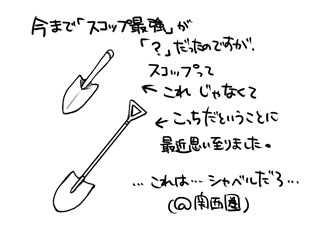 今まで「スコップ最強」が
「?」だったのですが、
スコップって
← これ じゃなくて
← こっちだということに
最近思い至りました。
…これは…シャベルだろ…
(@関西圏)